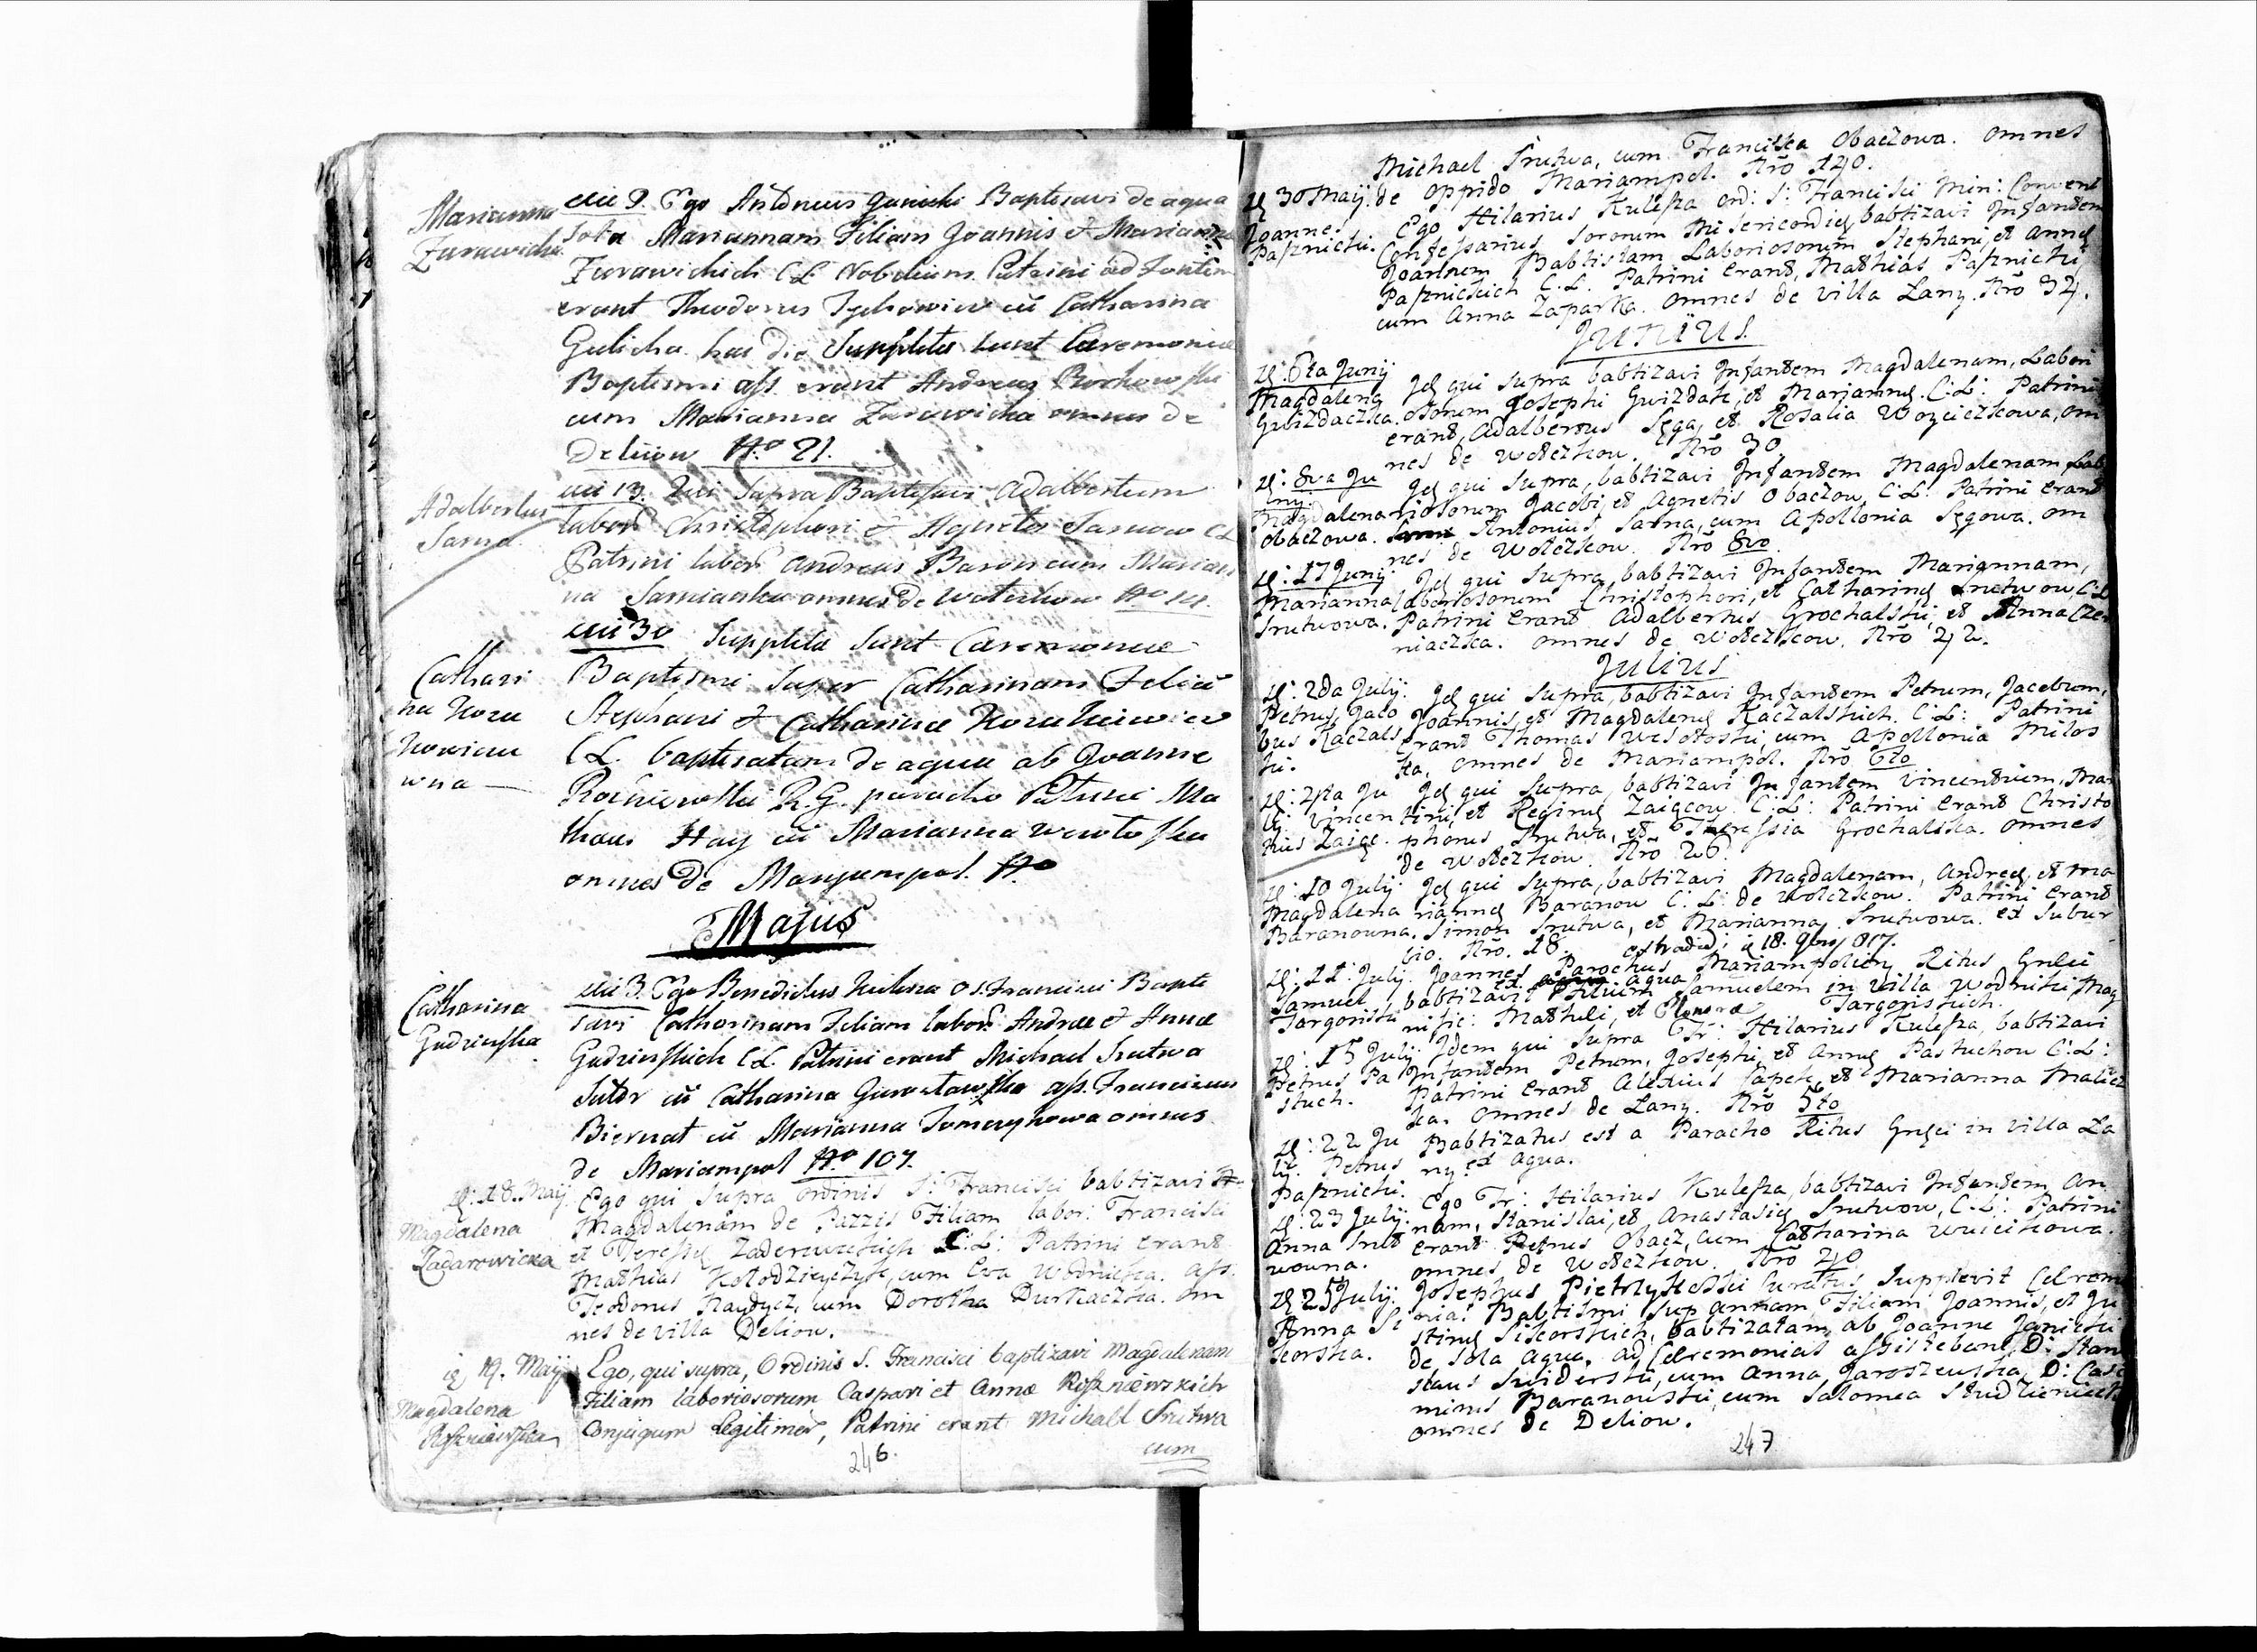 Marianna
Zurawicka
die 9. Ego Antonius Janicki Baptisavi de aqua
Sola Mariannam Filiam Joannis et Marianna
Zurawickich CL Nobilium. Patrini ad Fontem
erant Theodorus cū Catharina
Gulicka hac die Suppleta sunt Ceremoniæ
Baptismi ass. erant Andreas
cum Marianna Zurawicka omnes de
Deliiow No 21.
Adalbertus
Sarna
die 13. Qui supra Baptisavi Adalbertum
labor. Christophori et Agnetis Sarnow CL
Patrini labor. Andreas Baron cum Marian
na omnes de Woloczkow No 14.
die 30 Suppleta sunt Caeremoniæ
Cathari
na
wna
Baptismi super Catharinam Filiā
Stephani et Catharinæ
CL. baptisatam de aqua ab Joanne
R.G. parocho Patrini Ma
thæus Hay cū Marianna
omnes de Maryampol. No
Majus
Catharina
Gudzinska
die 3. Ego Benedictus O S. Francisci Bapti
savi Catharinam Filiam labor. Andreæ et Annæ
Gudzinskich CL. Patrini erant Michael Srutwa
Sutor cū Catharina ass. Franciscus
Biernat cū Marianna omnes
de Mariampol No 107.
d: 18. Maij.
Magdalena
Zadarowicka
Ego qui supra ordinis S: Francisci babtizavi
Magdalenam de Pazzis Filiam labor: Francisci
et Teressæ C:L: Patrini erant
Mathias Kołodzieyczyk, cum Eva Wodnicka. ass.
Teodorus Haydycz, cum Dorotha Durkaczka. om
nes de villa Deliow.
d 19. Maij
Magdalena
Ego, qui supra, Ordinis S. Francisci baptizavi Magdalenam
Filiam laboriosorum Caspari et Annæ Roszniewskich
Conjugum Legitimor, Patrini erant Michael Srutwa
cum
246.
Michael Srutwa, cum Franciska Obaczowa. omnes
de Oppido Mariampol. Nrō 140.
d 30 Maij.
Joannes
Pasznicki.
Ego Hilarius Kulesza ord: S: Francisci Min: Convent
Confessarius Sororum Misericordiæ, babtizavi Infantem
Joannem Babtistam Laboriosorum Stephani, et Annæ
Pasznickich C:L: Patrini erant, Mathias Pasznicki
cum Anna Zaparka. omnes de villa Lany. Nrō 34.
Junius.
d: 6ta Junij
Magdalena
Gwizdaczka.
Id qui supra babtizavi Infantem Magdalenam, Labori
osorum Josephi Gwizdak, et Mariannæ. C:L: Patrini
erant, Adalbertus Sęga, et Rosalia Woyciczkowa, om
nes de Wołczkow. Nrō 30.
d: 8va Ju
nij.
Magdalena
Obaczowa.
Id qui supra, babtizavi Infantem Magdalenam Lab
riosorum Jacobi, et Agnetis Obaczow, C:L: Patrini erant
Antonius Sarna, cum Apollonia Sęgowa. om
nes de Wołczkow. Nrō 8vo.
d: 17 Junij
Marianna
Srutwowa.
Id qui supra, babtizavi Infantem Mariannam,
laboriosorum Christophori, et Catharinæ Srutwow, C:L
Patrini erant Adalbertus Grochalski, et Anna Czer
niaczka. omnes de Wołczkow. Nrō 42.
Julius
d: 2da Julij.
Petrus, Jaco
bus Kaczals
ki.
Id qui supra, babtizavi Infantem Petrum, Jacobum,
Joannis, et Magdalenæ Kaczalskich. C:L: Patrini
erant Thomas Wesołoski, cum Apollonia Miłos
ka, omnes de Mariampol. Nrō 6to
d: 4ta Ju
lij. Vincen
tius Zaięc.
Id qui supra, babtizavi Infantem Vincentium, Mar
tini, et Reginæ Zaięcow. C:L: Patrini erant Christo
phorus Srutwa, et Theressia Grochalska. omnes
de Wołczkow. Nrō 26.
d: 10 Julij
Magdalena
Baranowna.
Id qui supra, babtizavi Magdalenam, Andreæ, et Ma
riannæ Baranow C:L: de Wołczkow. Patrini erant
Simon Srutwa, et Marianna Srutwowa. ex Subur
bio. Nrō. 18. extradidi d 18. 9bris 817.
d: 11: Julij.
Samuel
Targoriski
Joannes Parochus Mariampolien Ritus Græci
babtizavit ex aqua Filium Samuelem in villa Wodniki Mag
nific: Mathei, et Eleonoræ Targoriskich.
d: 15 Julij
Petrus Pa
stuch.
Idem qui supra Fr: Hilarius Kulesza, babtizavi
Infantem Petrum, Josephi, et Annæ Pastuchow C:L:
Patrini erant Alexius Capek, et Marianna Malicz
ka. omnes de Lany. Nrō 5to
d: 22 Ju
lij. Petrus
Pasznicki.
Babtizatus est a Paracho Ritus Græci in villa La
ny. ex aqua.
d: 23 Julij.
Anna Srut
wowna.
Ego Fr: Hilarius Kulesza, babtizavi Infantem An
nam, Stanislai, et Anastasiæ Srutwow, C:L: Patrini
erant Petrus Obacz, cum Catharina Wuicikowa.
omnes de Wołczkow. Nrō 40
d 25 Julij.
Anna Si
korska.
Josephus Curatus Supplevit Cerem
nia: Babtismi sup Annam, Filiam Joannis, et Ju
stinæ Sikorskich, babtizatam, ab Joanne Janicki
de sola aqua, ad Cæremonias assistebant, D: Stani
slaus Swiderski, cum Anna Jaroszewska, D: Casi
mirus Baranowski, cum Salomea
omnes de Deliow.
247